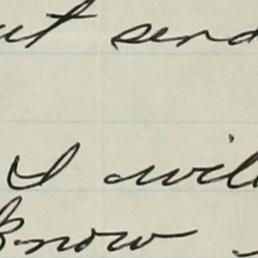 ut send
I will
know